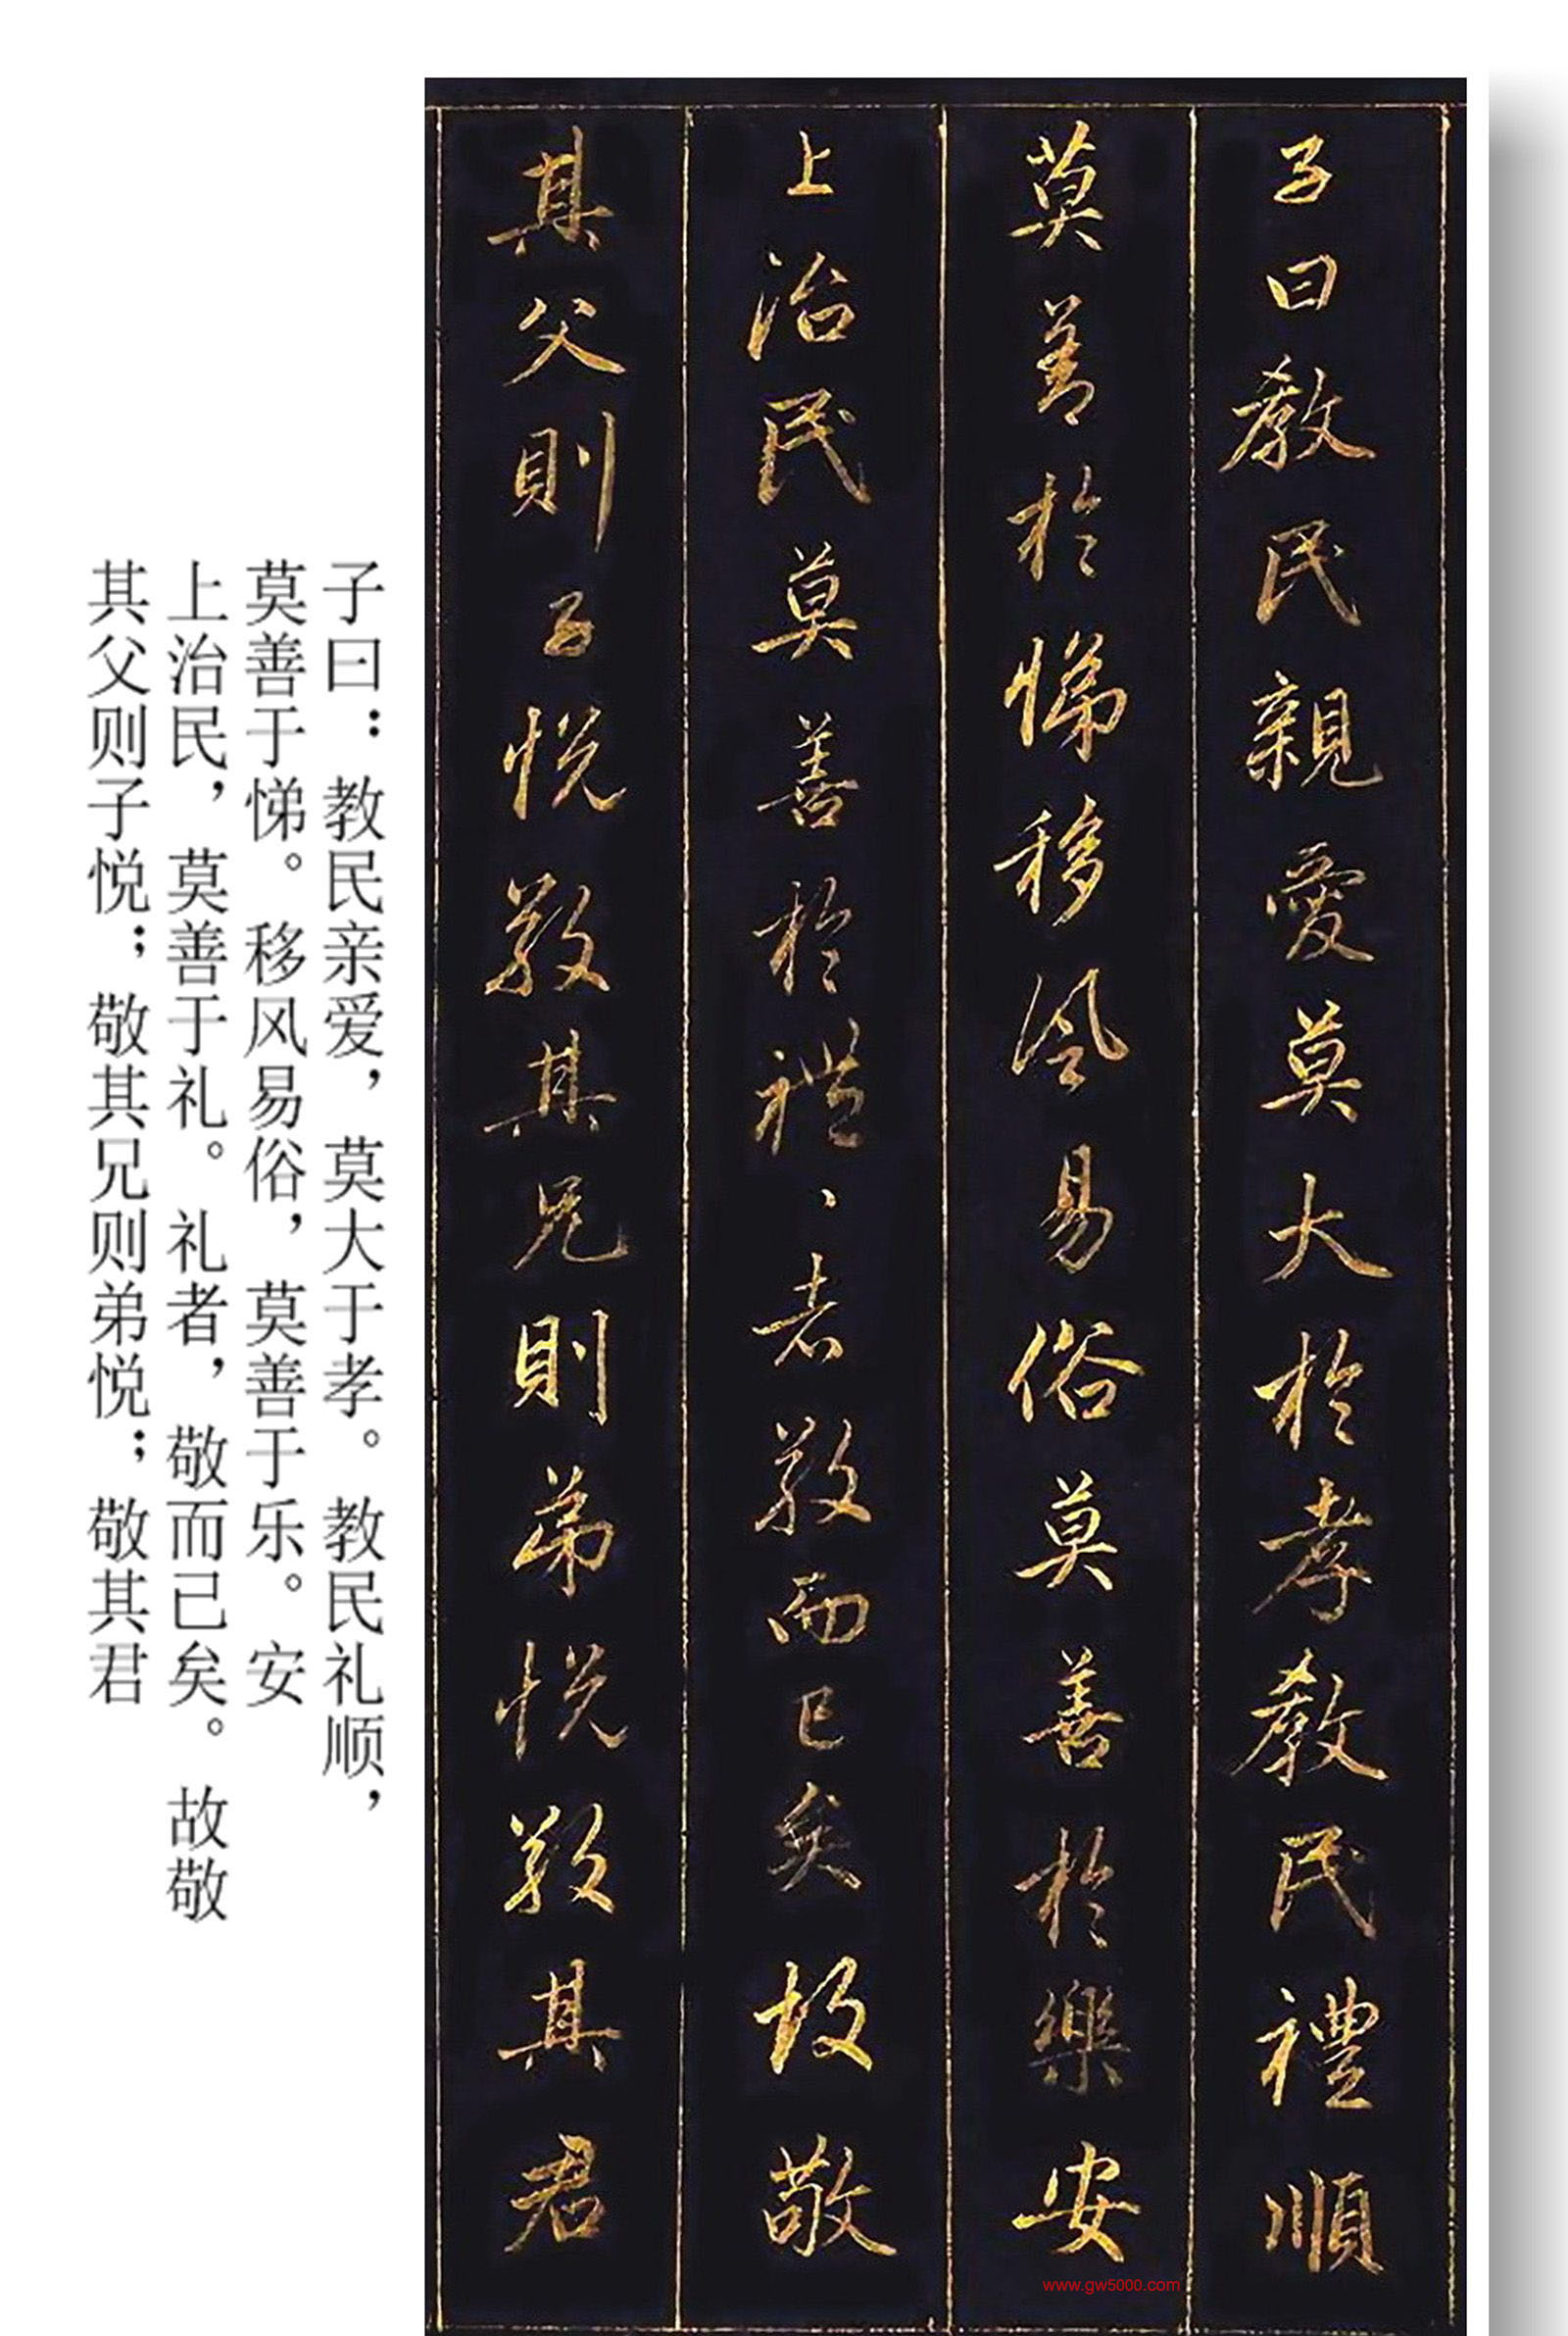 子曰教民親愛莫大於孝教民禮順
莫善於悌移風易俗莫善於樂安
上治民莫善於禮、者敬而已矣故敬
其父則子悦敬其兄則弟悦敬其君
子曰：教民亲爱，莫大于孝。教民礼顺，
莫善于悌。移风易俗，莫善于乐。安
上治民，莫善于礼。礼者，敬而已矣。故敬
其父则子悦；敬其兄则弟悦；敬其君
www.gw5000.com